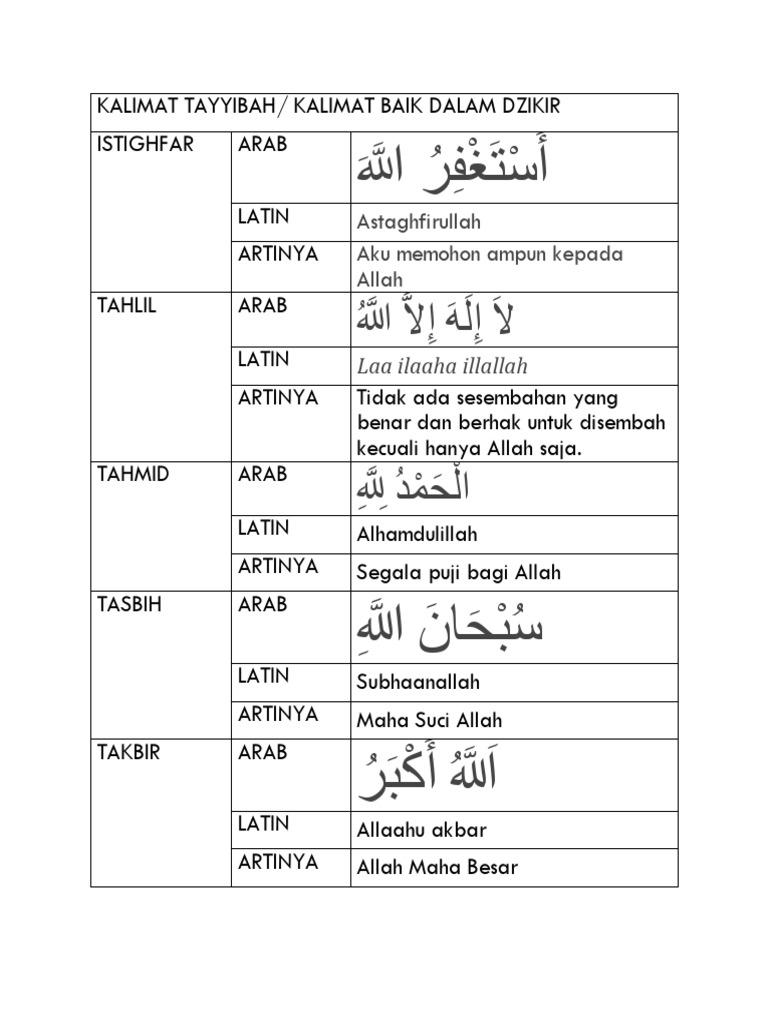 KALIMAT TAYYIBAH/ KALIMAT BAIK DALAM DZIKIR
ISTIGHFAR ARAB أَسْتَغْفِرُ اللَّهَ
LATIN Astaghfirullah
ARTINYA Aku memohon ampun kepada
Allah
TAHLIL ARAB لاَ إِلَهَ إِلاَّ اللَّهُ
LATIN Laa ilaaha illallah
ARTINYA Tidak ada sesembahan yang
benar dan berhak untuk disembah
kecuali hanya Allah saja.
TAHMID ARAB الْحَمْدُ لِلَّهِ
LATIN Alhamdulillah
ARTINYA Segala puji bagi Allah
TASBIH ARAB سُبْحَانَ اللَّهِ
LATIN Subhaanallah
ARTINYA Maha Suci Allah
TAKBIR ARAB اَللَّهُ أَكْبَرُ
LATIN Allaahu akbar
ARTINYA Allah Maha Besar